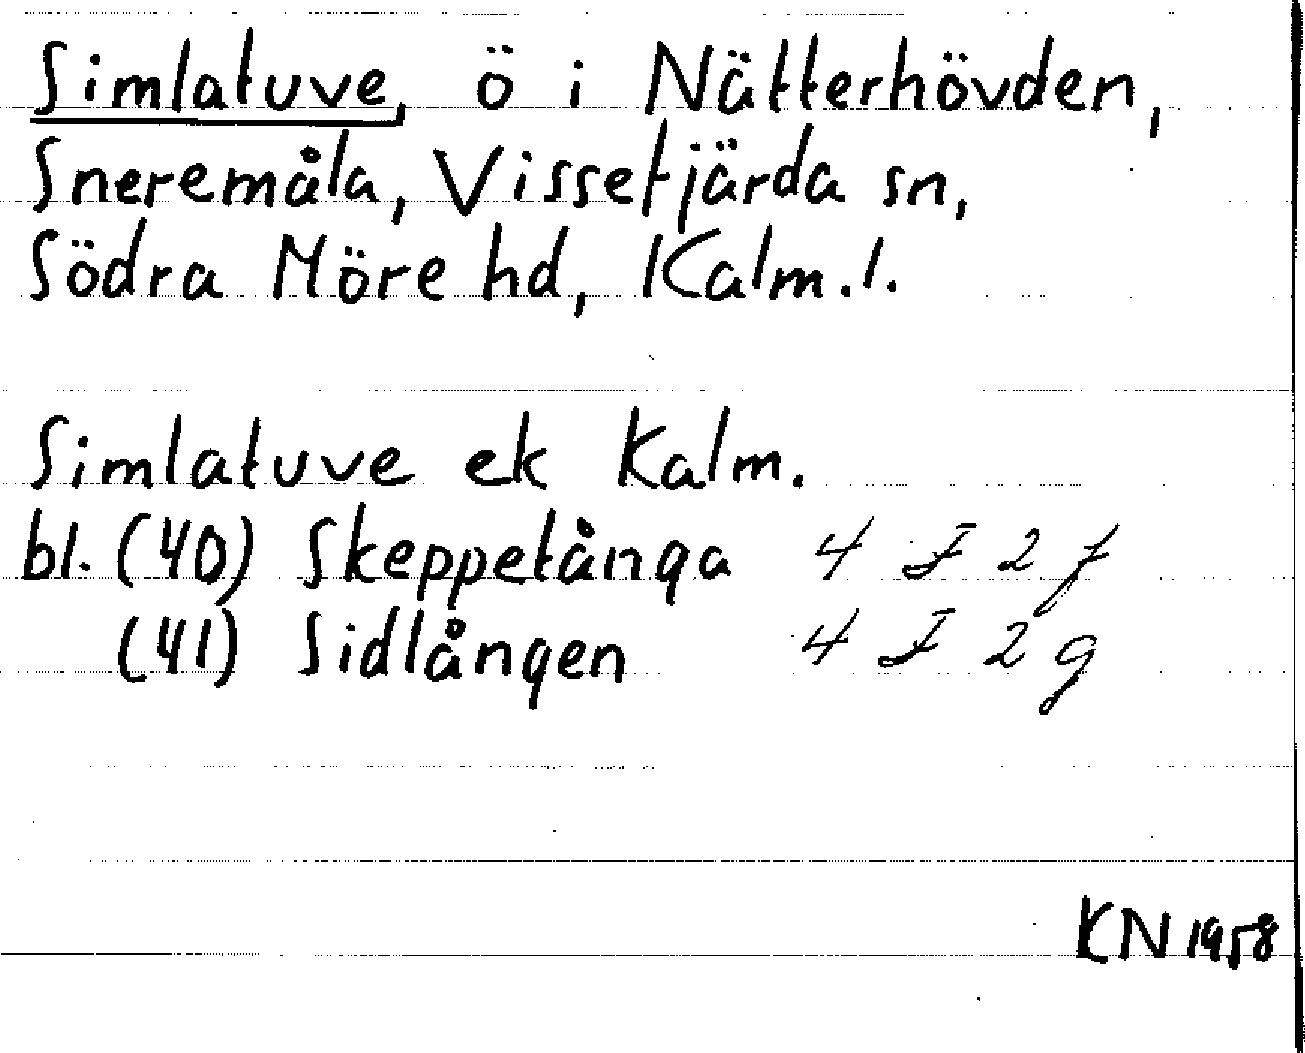 Simlatuve, ö i Nätterhövden,
Sneremåla, Vissefjärda sn,
Södra Möre hd, Kalm. l.
Simlatuve ek Kalm.
bl. (40) Skeppetånga 4 F 2 f
(41) Sidlången 4 F 2 g
KN 1958